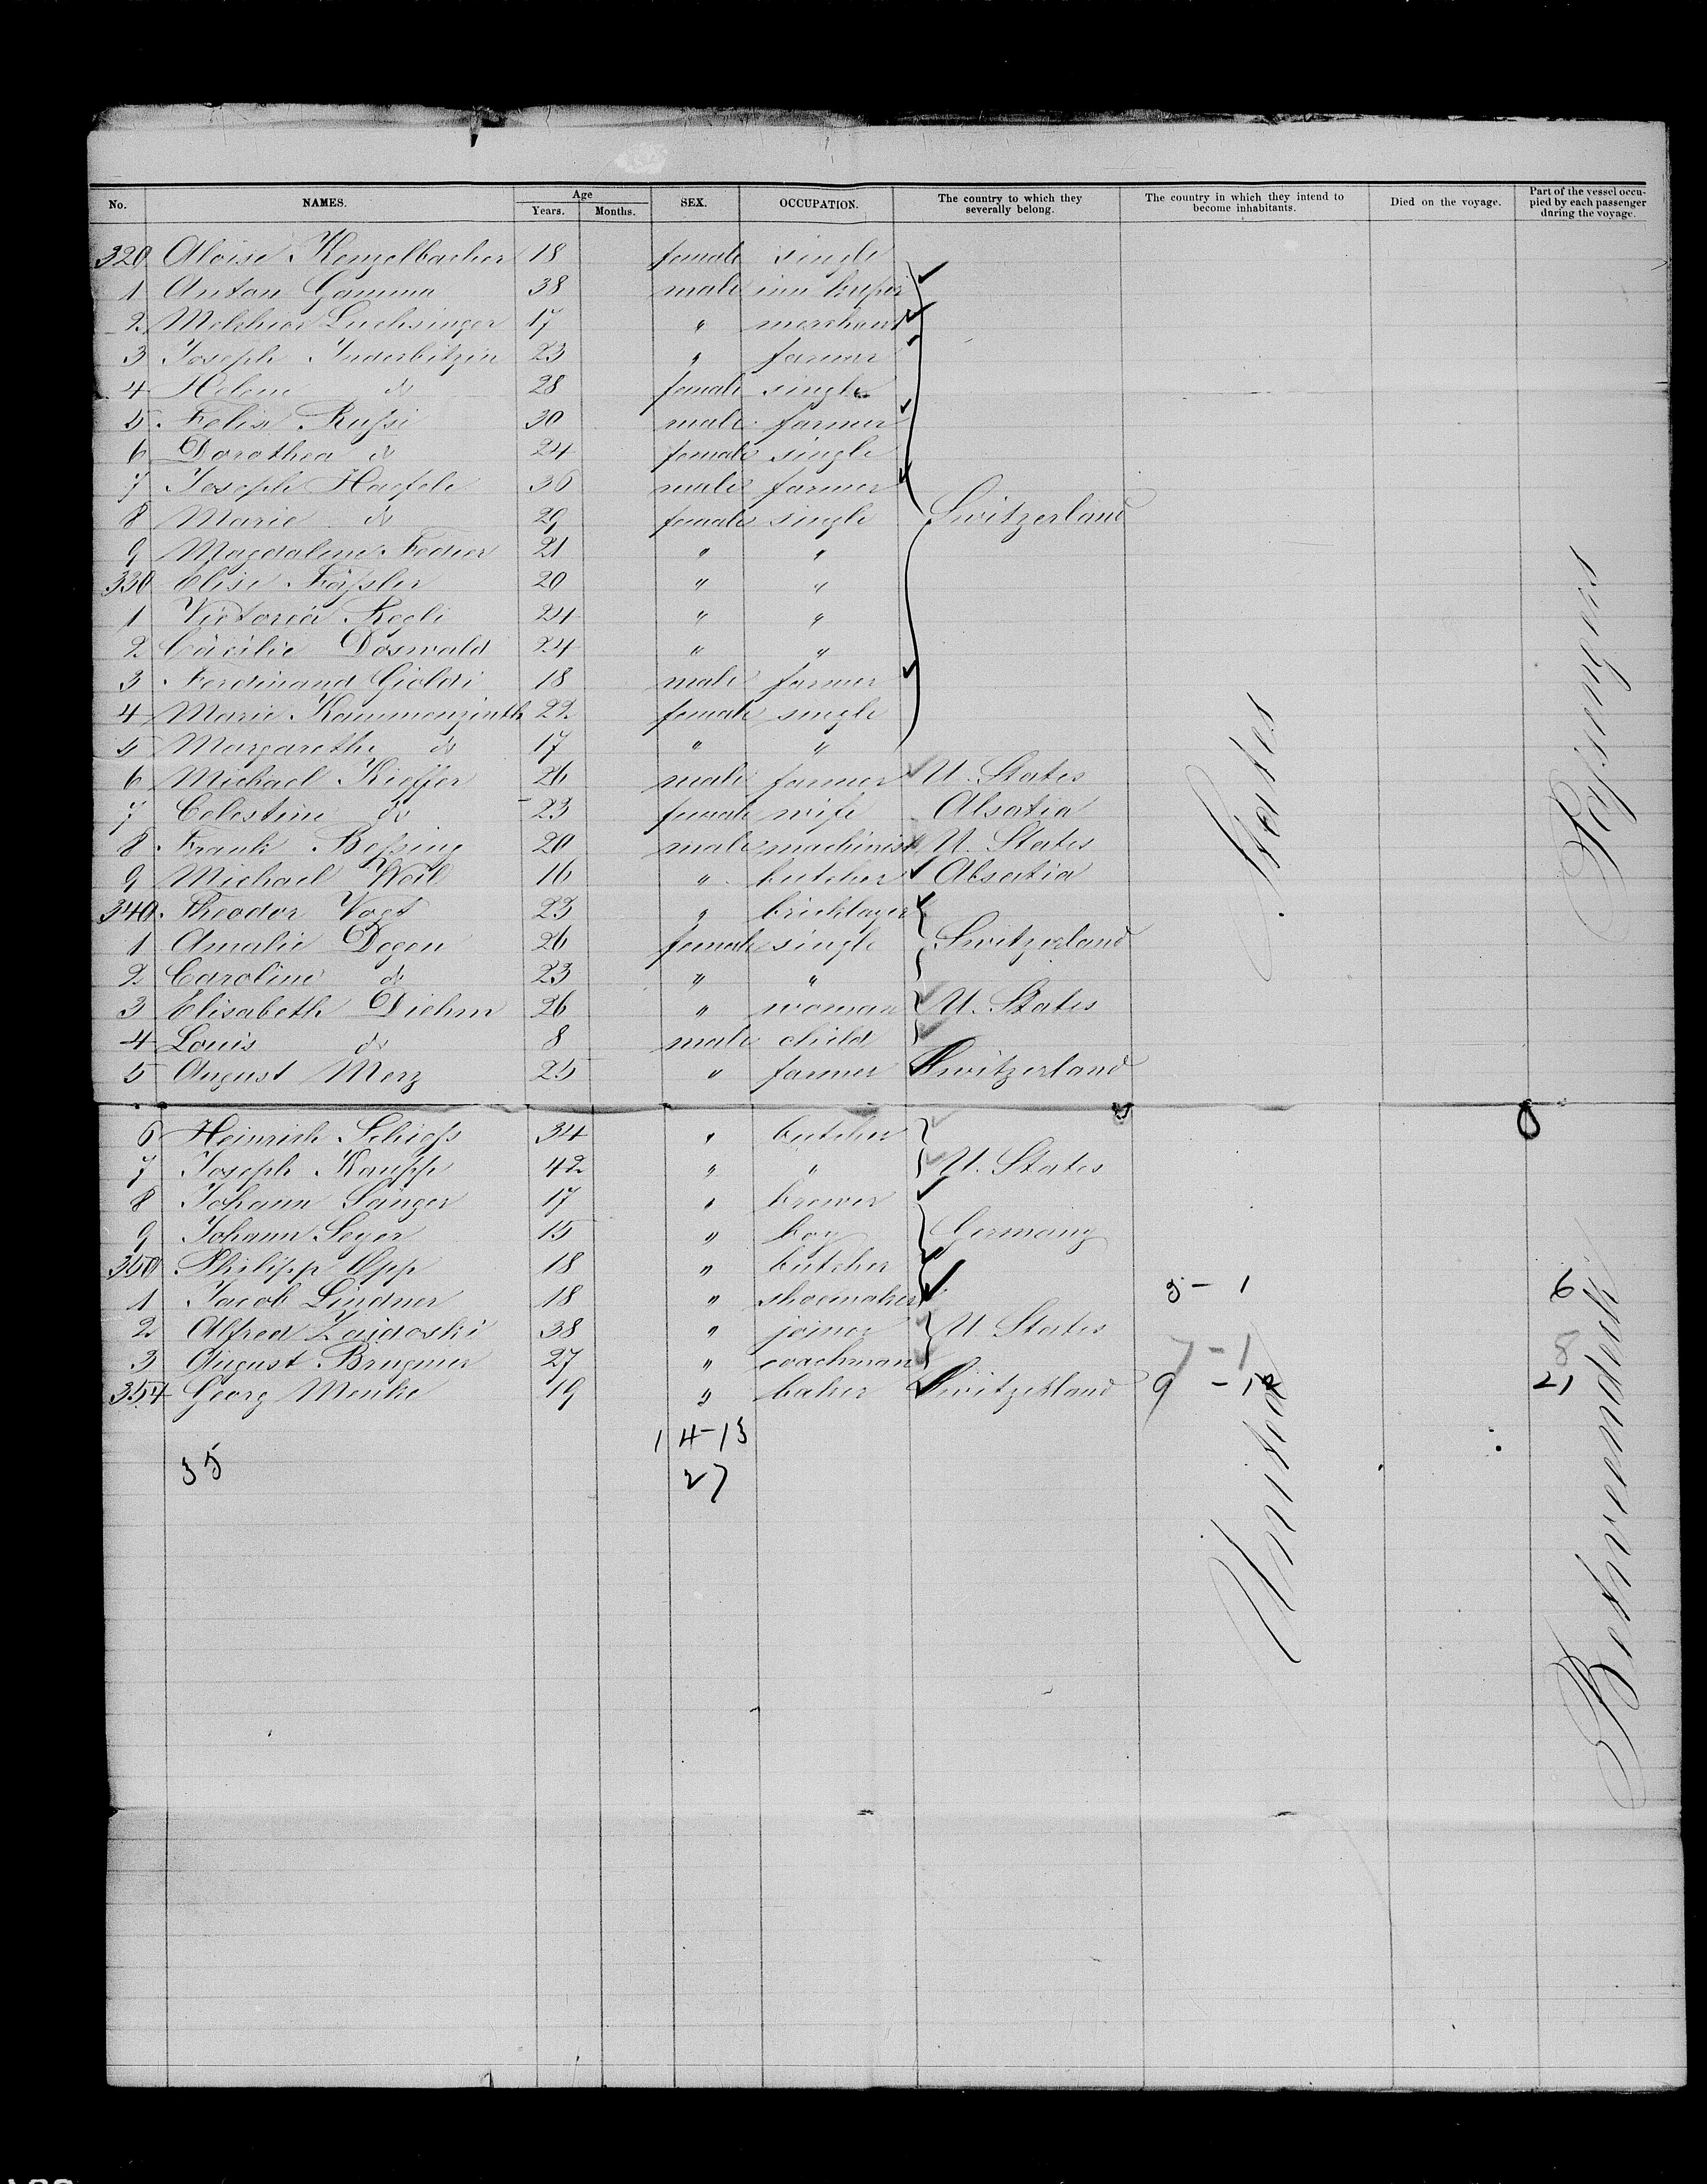 No. NAMES. Age Years. Months. SEX. OCCUPATION. The country to which they severally belong. The country in which they intend to become inhabitants. Died on the voyage. Part of the vessel occupied by each passenger during the voyage.
320 Aloise Kenzelbacher 18 female single
1 Anton Gamma 38 male inn keeper
2 Melchior Luchsinger 17 " merchant
3 Joseph Inderbitzin 23 " farmer
4 Helene do 28 female single
5 Felix Russi 30 male farmer
6 Dorothea do 24 female single
7 Joseph Haefele 36 male farmer
8 Marie do 29 female single Switzerland
9 Magdalene Fedier 21 " "
330 Elise Fässler 20 " "
1 Victoria Regli 24 " "
2 Cäcilie Doswald 24 " "
3 Ferdinand Gioldi 18 male farmer
4 Marie Kammenzinth 22 female single
5 Margarethe do 17 " "
6 Michael Kieffer 26 male farmer U. States
7 Celestine do 23 female wife Alsatia
8 Frank Bessing 20 male machinist U. States
9 Michael Weil 16 " butcher Alsatia
340 Theodor Vogt 23 " bricklayer
1 Amalie Degen 26 female single Switzerland
2 Caroline do 23 " "
3 Elisabeth Diehm 26 " woman U. States
4 Louis do 8 male child
5 August Merz 25 " farmer Switzerland
6 Heinrich Schiess 34 " butcher
7 Joseph Kaupp 42 " " U. States
8 Johann Sänger 17 " brewer
9 Johann Seger 15 " boy Germany
350 Philipp Opp 18 " butcher
1 Jacob Lindner 18 " shoemaker 3 - 1 6
2 Alfred Zaidoski 38 " joiner U. States
3 August Brugnier 27 " coachman 7 - 1 8
354 Georg Menke 19 " baker Switzerland 9 - 12 21
14-13
35 27
United States
Betweendeck Passengers